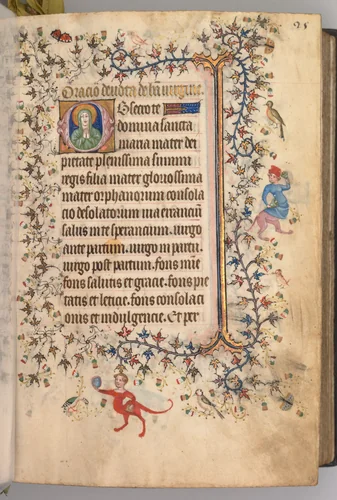 25
Oracio devota de b(ea)ta virgine
Obsecro te
domina sancta
maria mater dei
pietate plenissima summi
regis filia mater gloriosissima
mater orphanorum consola
cio desolatorum via erranciu(m)
salus i(n) te sperancium. virgo
ante partum. virgo in partu.
virgo post partum. fons mi(sericordi)e
fons salutis et gracie. fons pie
tatis et leticie. fons consolaci
onis et indulgencie. Et per